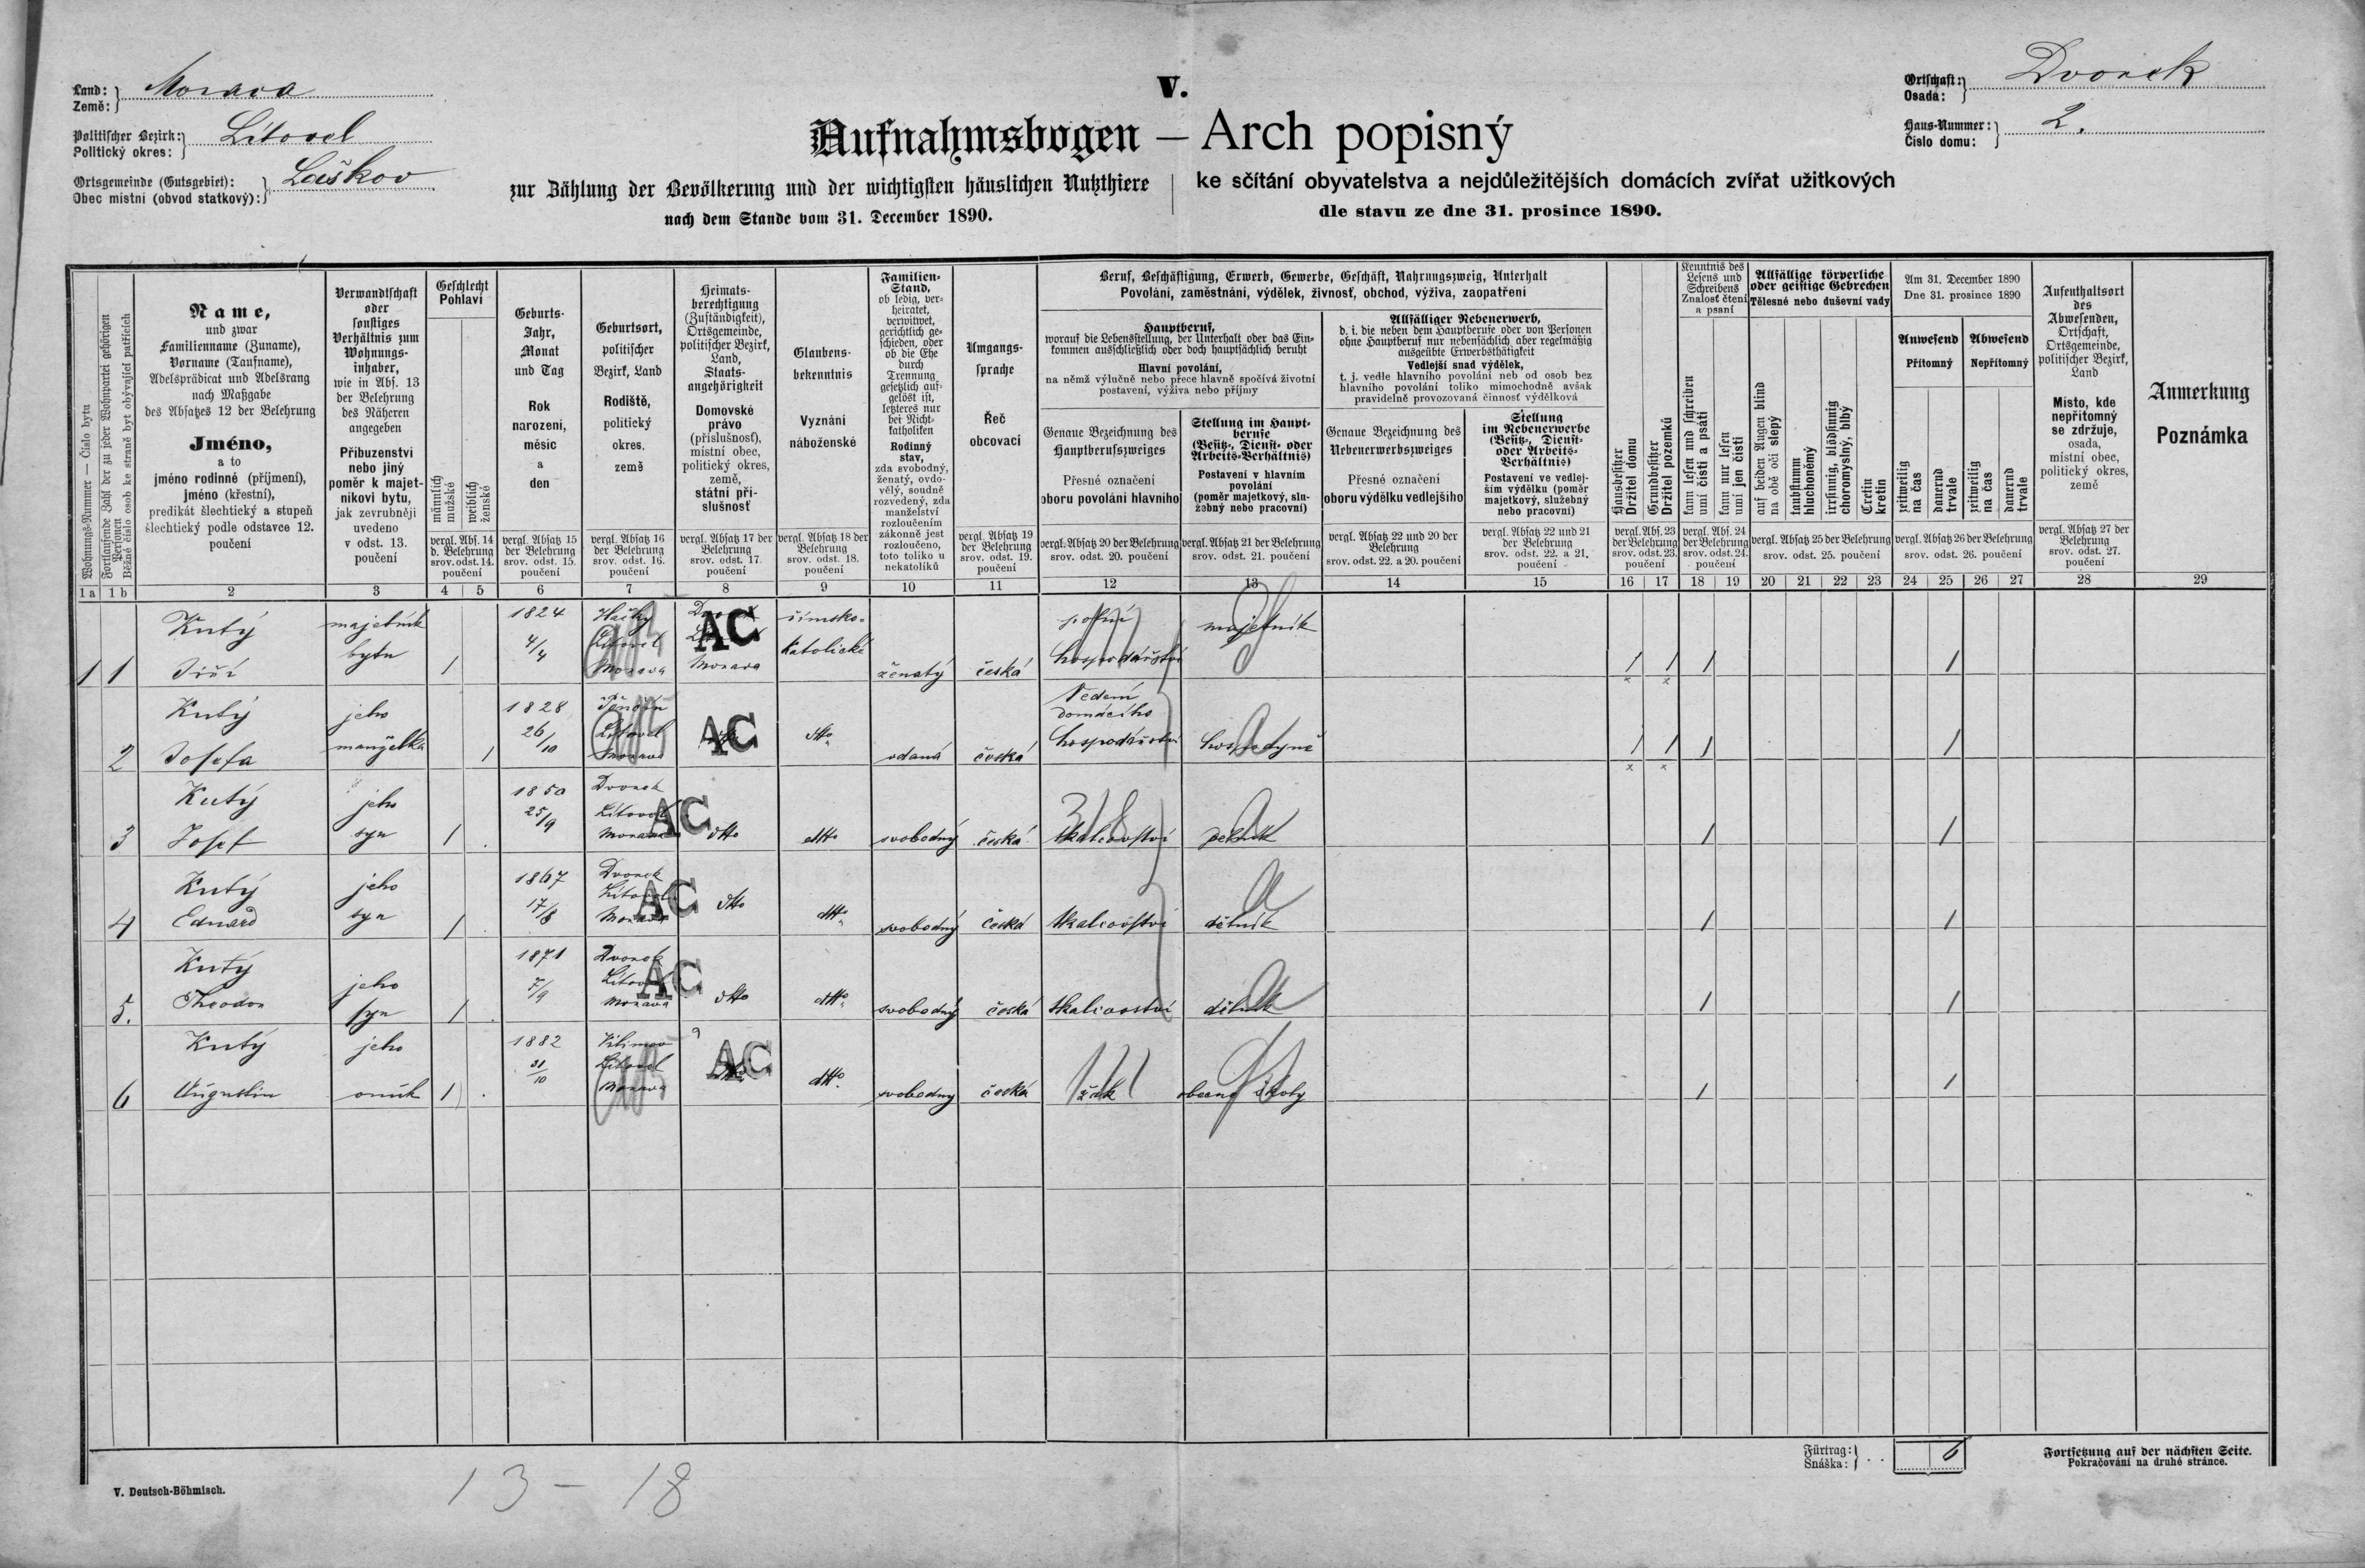 Land: Země: Morava
Politischer Bezirk: Politický okres: Litovel
Ortsgemeinde (Gutsgebiet): Obec místní (obvod statkový): Laškov
V.
Aufnahmsbogen — Arch popisný
zur Zählung der Bevölkerung und der wichtigsten häuslichen Nutzthiere
nach dem Stande vom 31. December 1890.
ke sčítání obyvatelstva a nejdůležitějších domácích zvířat užitkových
dle stavu ze dne 31. prosince 1890.
Ortschaft: Osada: Dvorek
Haus-Nummer: Číslo domu: 2.
Wohnungs-Nummer — Číslo bytu
Fortlaufende Zahl der zu jeder Wohnpartei gehörigen Personen
Běžné číslo osob ke straně byt obývající patřících
Name,
und zwar
Familienname (Zuname),
Vorname (Taufname),
Adelsprädicat und Adelsrang
nach Maßgabe
des Absatzes 12 der Belehrung
Jméno,
a to
jméno rodinné (příjmení),
jméno (křestní),
predikát šlechtický a stupeň
šlechtický podle odstavce 12.
poučení
Verwandtschaft
oder
sonstiges
Verhältnis zum
Wohnungs-
inhaber,
wie in Abs. 13
der Belehrung
des Näheren
angegeben
Příbuzenství
nebo jiný
poměr k majet-
níkovi bytu,
jak zevrubněji
uvedeno
v odst. 13.
poučení
Geschlecht
Pohlaví
männlich
mužské
weiblich
ženské
vergl. Abs. 14
d. Belehrung
srov. odst. 14.
poučení
Geburts-
Jahr,
Monat
und Tag
Rok
narození,
měsíc
a
den
vergl. Absatz 15
der Belehrung
srov. odst. 15.
poučení
Geburtsort,
politischer
Bezirk, Land
Rodiště,
politický
okres,
země
vergl. Absatz 16
der Belehrung
srov. odst. 16.
poučení
Heimats-
berechtigung
(Zuständigkeit),
Ortsgemeinde,
politischer Bezirk,
Land,
Staats-
angehörigkeit
Domovské
právo
(příslušnosť),
místní obec,
politický okres,
země,
státní pří-
slušnosť
vergl. Absatz 17 der
Belehrung
srov. odst. 17.
poučení
Glaubens-
bekenntnis
Vyznání
náboženské
vergl. Absatz 18 der
Belehrung
srov. odst. 18.
poučení
Familien-
Stand,
ob ledig, ver-
heiratet,
verwitwet,
gerichtlich ge-
schieden, oder
ob die Ehe
durch
Trennung
gesetzlich auf-
gelöst ist,
letzteres nur
bei Nicht-
katholiken
Rodinný
stav,
zda svobodný,
ženatý, ovdo-
vělý, soudně
rozvedený, zda
manželství
rozloučením
zákonně jest
rozloučeno,
toto toliko u
nekatolíků
Umgangs-
sprache
Řeč
obcovací
vergl. Absatz 19
der Belehrung
srov. odst. 19.
poučení
Beruf, Beschäftigung, Erwerb, Gewerbe, Geschäft, Nahrungszweig, Unterhalt
Povolání, zaměstnání, výdělek, živnosť, obchod, výživa, zaopatření
Hauptberuf,
worauf die Lebensstellung, der Unterhalt oder das Ein-
kommen ausschließlich oder doch hauptsächlich beruht
Hlavní povolání,
na němž výlučně nebo přece hlavně spočívá životní
postavení, výživa nebo příjmy
Genaue Bezeichnung des
Hauptberufszweiges
Přesné označení
oboru povolání hlavního
vergl. Absatz 20 der Belehrung
srov. odst. 20. poučení
Stellung im Haupt-
berufe
(Besitz-, Dienst- oder
Arbeits-Verhältnis)
Postavení v hlavním
povolání
(poměr majetkový, slu-
žebný nebo pracovní)
vergl. Absatz 21 der Belehrung
srov. odst. 21. poučení
Allfälliger Nebenerwerb,
d. i. die neben dem Hauptberufe oder von Personen
ohne Hauptberuf nur nebensächlich aber regelmäßig
ausgeübte Erwerbsthätigkeit
Vedlejší snad výdělek,
t. j. vedle hlavního povolání neb od osob bez
hlavního povolání toliko mimochodně avšak
pravidelně provozovaná činnosť výdělková
Genaue Bezeichnung des
Nebenerwerbszweiges
Přesné označení
oboru výdělku vedlejšího
vergl. Absatz 22 und 20 der
Belehrung
srov. odst. 22. a 20. poučení
Stellung
im Nebenerwerbe
(Besitz-, Dienst-
oder Arbeits-
Verhältnis)
Postavení ve vedlej-
ším výdělku (poměr
majetkový, služebný
nebo pracovní)
vergl. Absatz 22 und 21
der Belehrung
srov. odst. 22. a 21.
poučení
Hausbesitzer
Držitel domu
Grundbesitzer
Držitel pozemků
vergl. Abs. 23
der Belehrung
srov. odst. 23.
poučení
Kenntnis des
Lesens und
Schreibens
Znalosť čtení
a psaní
kann lesen und schreiben
umí čísti a psáti
kann nur lesen
umí jen čísti
vergl. Abs. 24
der Belehrung
srov. odst. 24.
poučení
Allfällige körperliche
oder geistige Gebrechen
Tělesné nebo duševní vady
auf beiden Augen blind
na obě oči slepý
taubstumm
hluchoněmý
irrsinnig, blödsinnig
choromyslný, blbý
Cretin
kretin
vergl. Absatz 25 der Belehrung
srov. odst. 25. poučení
Am 31. December 1890
Dne 31. prosince 1890
Anwesend
Přítomný
Abwesend
Nepřítomný
zeitweilig
na čas
dauernd
trvale
zeitweilig
na čas
dauernd
trvale
vergl. Absatz 26 der Belehrung
srov. odst. 26. poučení
Aufenthaltsort
des
Abwesenden,
Ortschaft,
Ortsgemeinde,
politischer Bezirk,
Land
Místo, kde
nepřítomný
se zdržuje,
osada,
místní obec,
politický okres,
země
vergl. Absatz 27 der
Belehrung
srov. odst. 27.
poučení
Anmerkung
Poznámka
1a 1b 2 3 4 5 6 7 8 9 10 11 12 13 14 15 16 17 18 19 20 21 22 23 24 25 26 27 28 29
1 1 Kutý Jiří majetník bytu 1 1824 4/4 Litovel Morava AC Morava římsko-katolické ženatý česká polní hospodářství majetník 1 1 1 1
2 Kutý Josefa jeho manželka 1 1828 26/10 Litovel Morava AC dtto vdaná česká Vedení domácího hospodářství hospodyně 1 1 1 1
3 Kutý Josef jeho syn 1 1850 25/9 Dvorek Litovel Morava AC dtto dtto svobodný česká tkalcovství 1 1
4 Kutý Eduard jeho syn 1 1867 17/8 Dvorek Litovel Morava AC dtto dtto svobodný česká tkalcovství dělník 1 1
5. Kutý Theodor jeho syn 1 1871 7/9 Dvorek Litovel Morava AC dtto dtto svobodný česká tkalcovství dělník 1 1
6 Kutý Augustin jeho vnuk 1 1882 31/10 Vilimov Litovel Morava AC dtto svobodný česká žák obecné školy 1 1
Fürtrag: Snáška: 6
Fortsetzung auf der nächsten Seite.
Pokračování na druhé stránce.
V. Deutsch-Böhmisch.
13 - 18